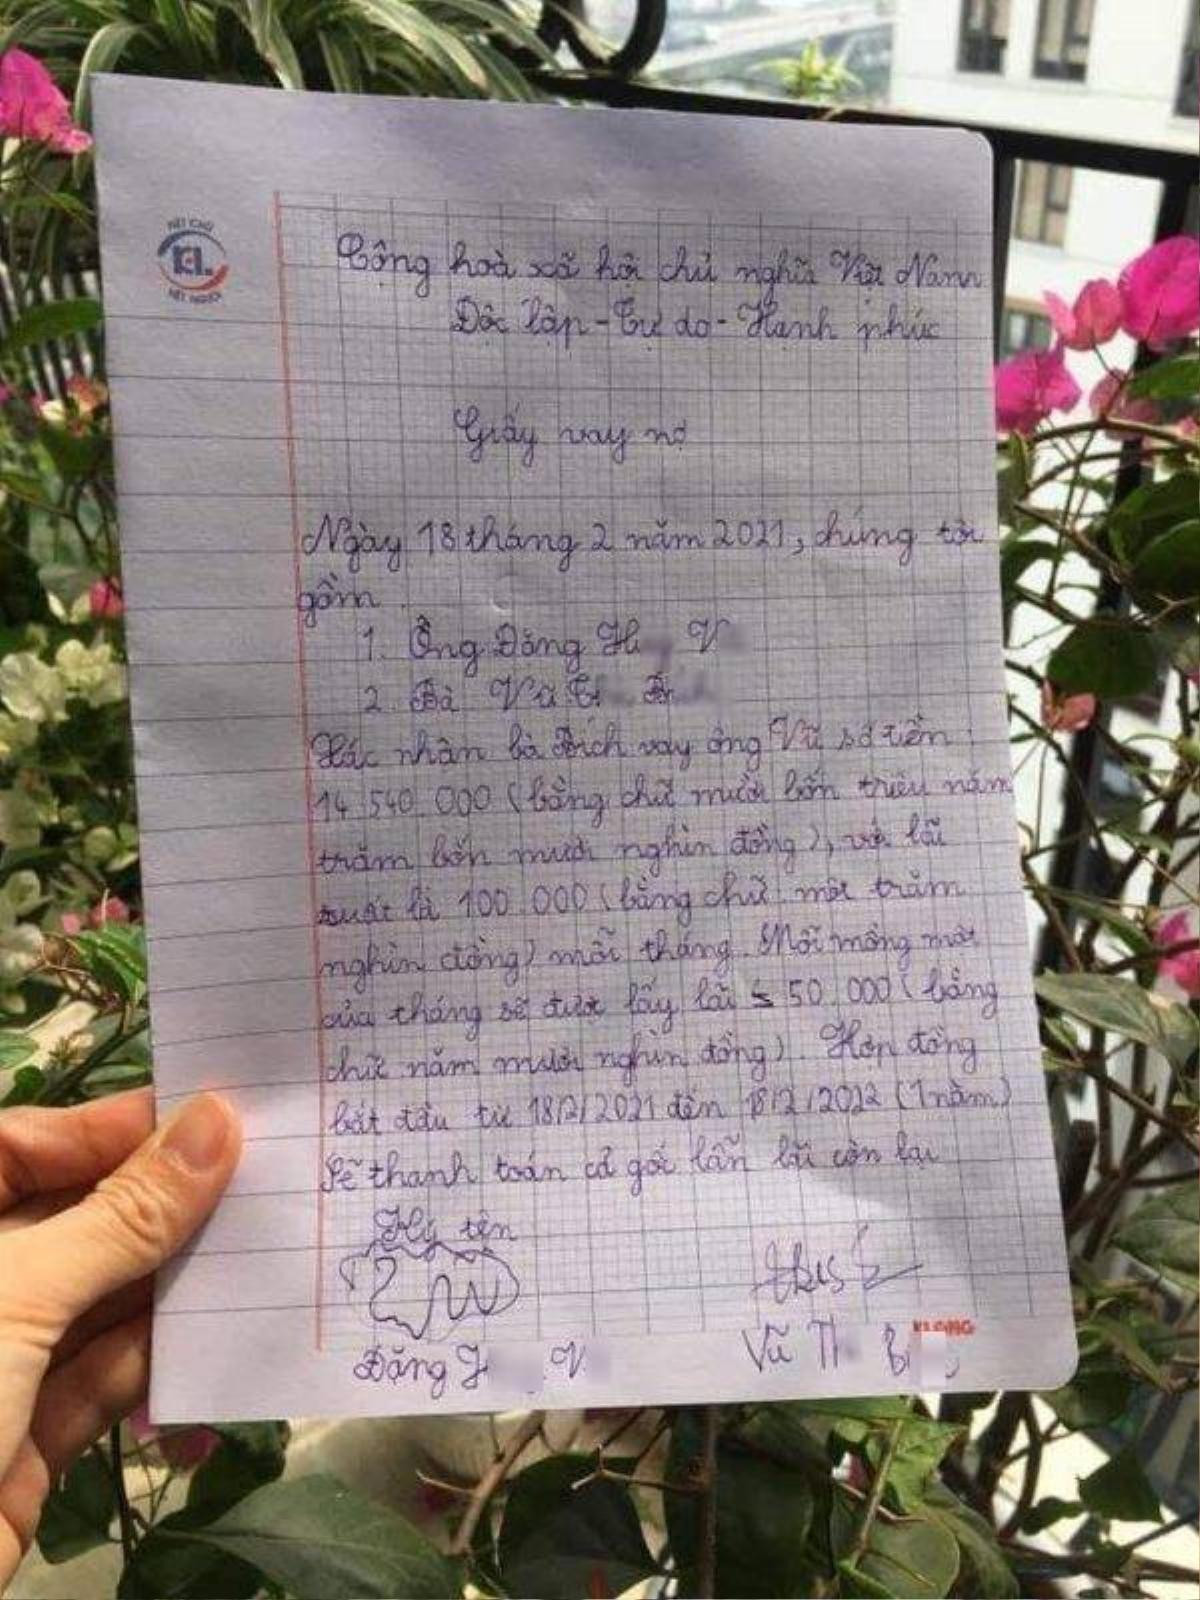 NÉT CHỮ
KL
NẾT NGƯỜI
Cộng hoà xã hội chủ nghĩa Việt Nam
Độc lập - Tự do - Hạnh phúc
Giấy vay nợ
Ngày 18 tháng 2 năm 2021, chúng tôi
gồm
1. Ông Đặng V
2. Bà Vũ
Xác nhận bà Bích vay ông Vũ số tiền:
14 540.000 (bằng chữ mười bốn triệu năm
trăm bốn mươi nghìn đồng), với lãi
suất là 100.000 (bằng chữ một trăm
nghìn đồng) mỗi tháng. Mỗi mồng một
của tháng sẽ được lấy lãi 50.000 (bằng
chữ năm mươi nghìn đồng). Hợp đồng
bắt đầu từ 18/2/2021 đến 18/2/2022 (1 năm)
Sẽ thanh toán cả gốc lẫn lãi còn lại
Ký tên
Đặng V
Vũ
KLONG